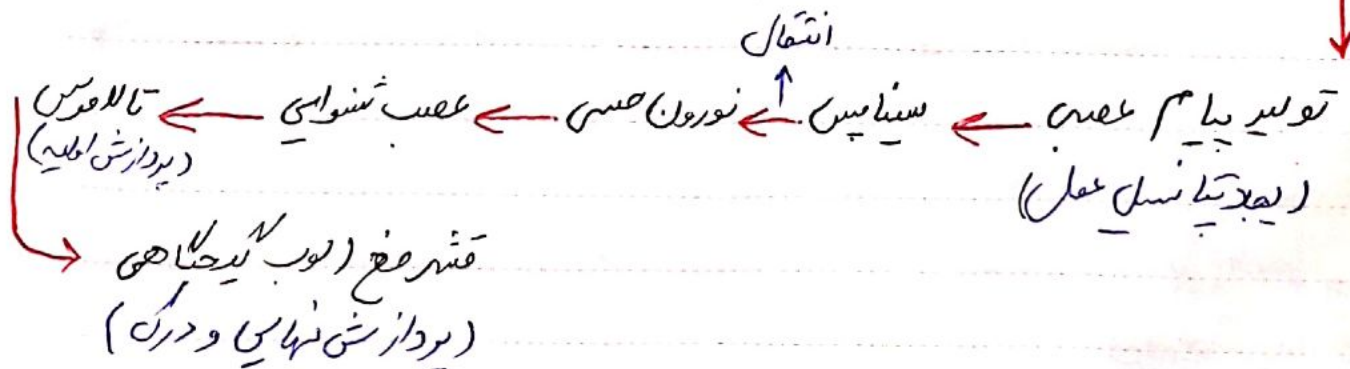 انتقال
تولید پیام عصبی ← سیناپس ← نورون حسی ← عصب شنوایی ← تالاموس
(ایجاد پتانسیل عمل) (پردازش اولیه)
قشر مخ (لوب گیجگاهی
(پردازش نهایی و درک)